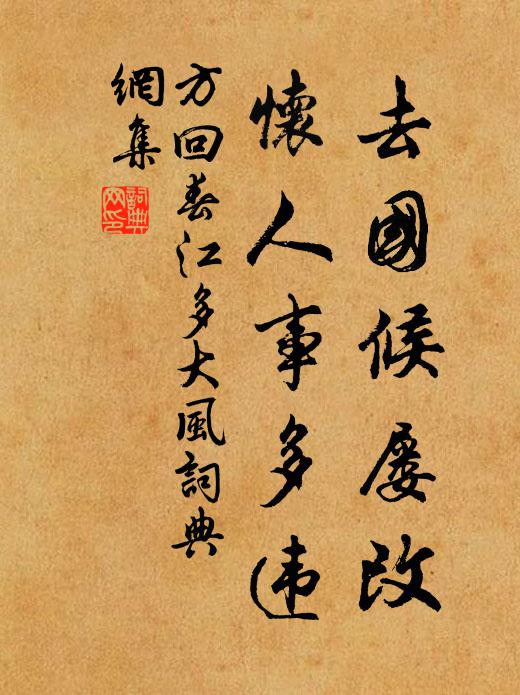 去國候屡改
懷人事多违
方回春江多大風詞典
網集
詞典
网印